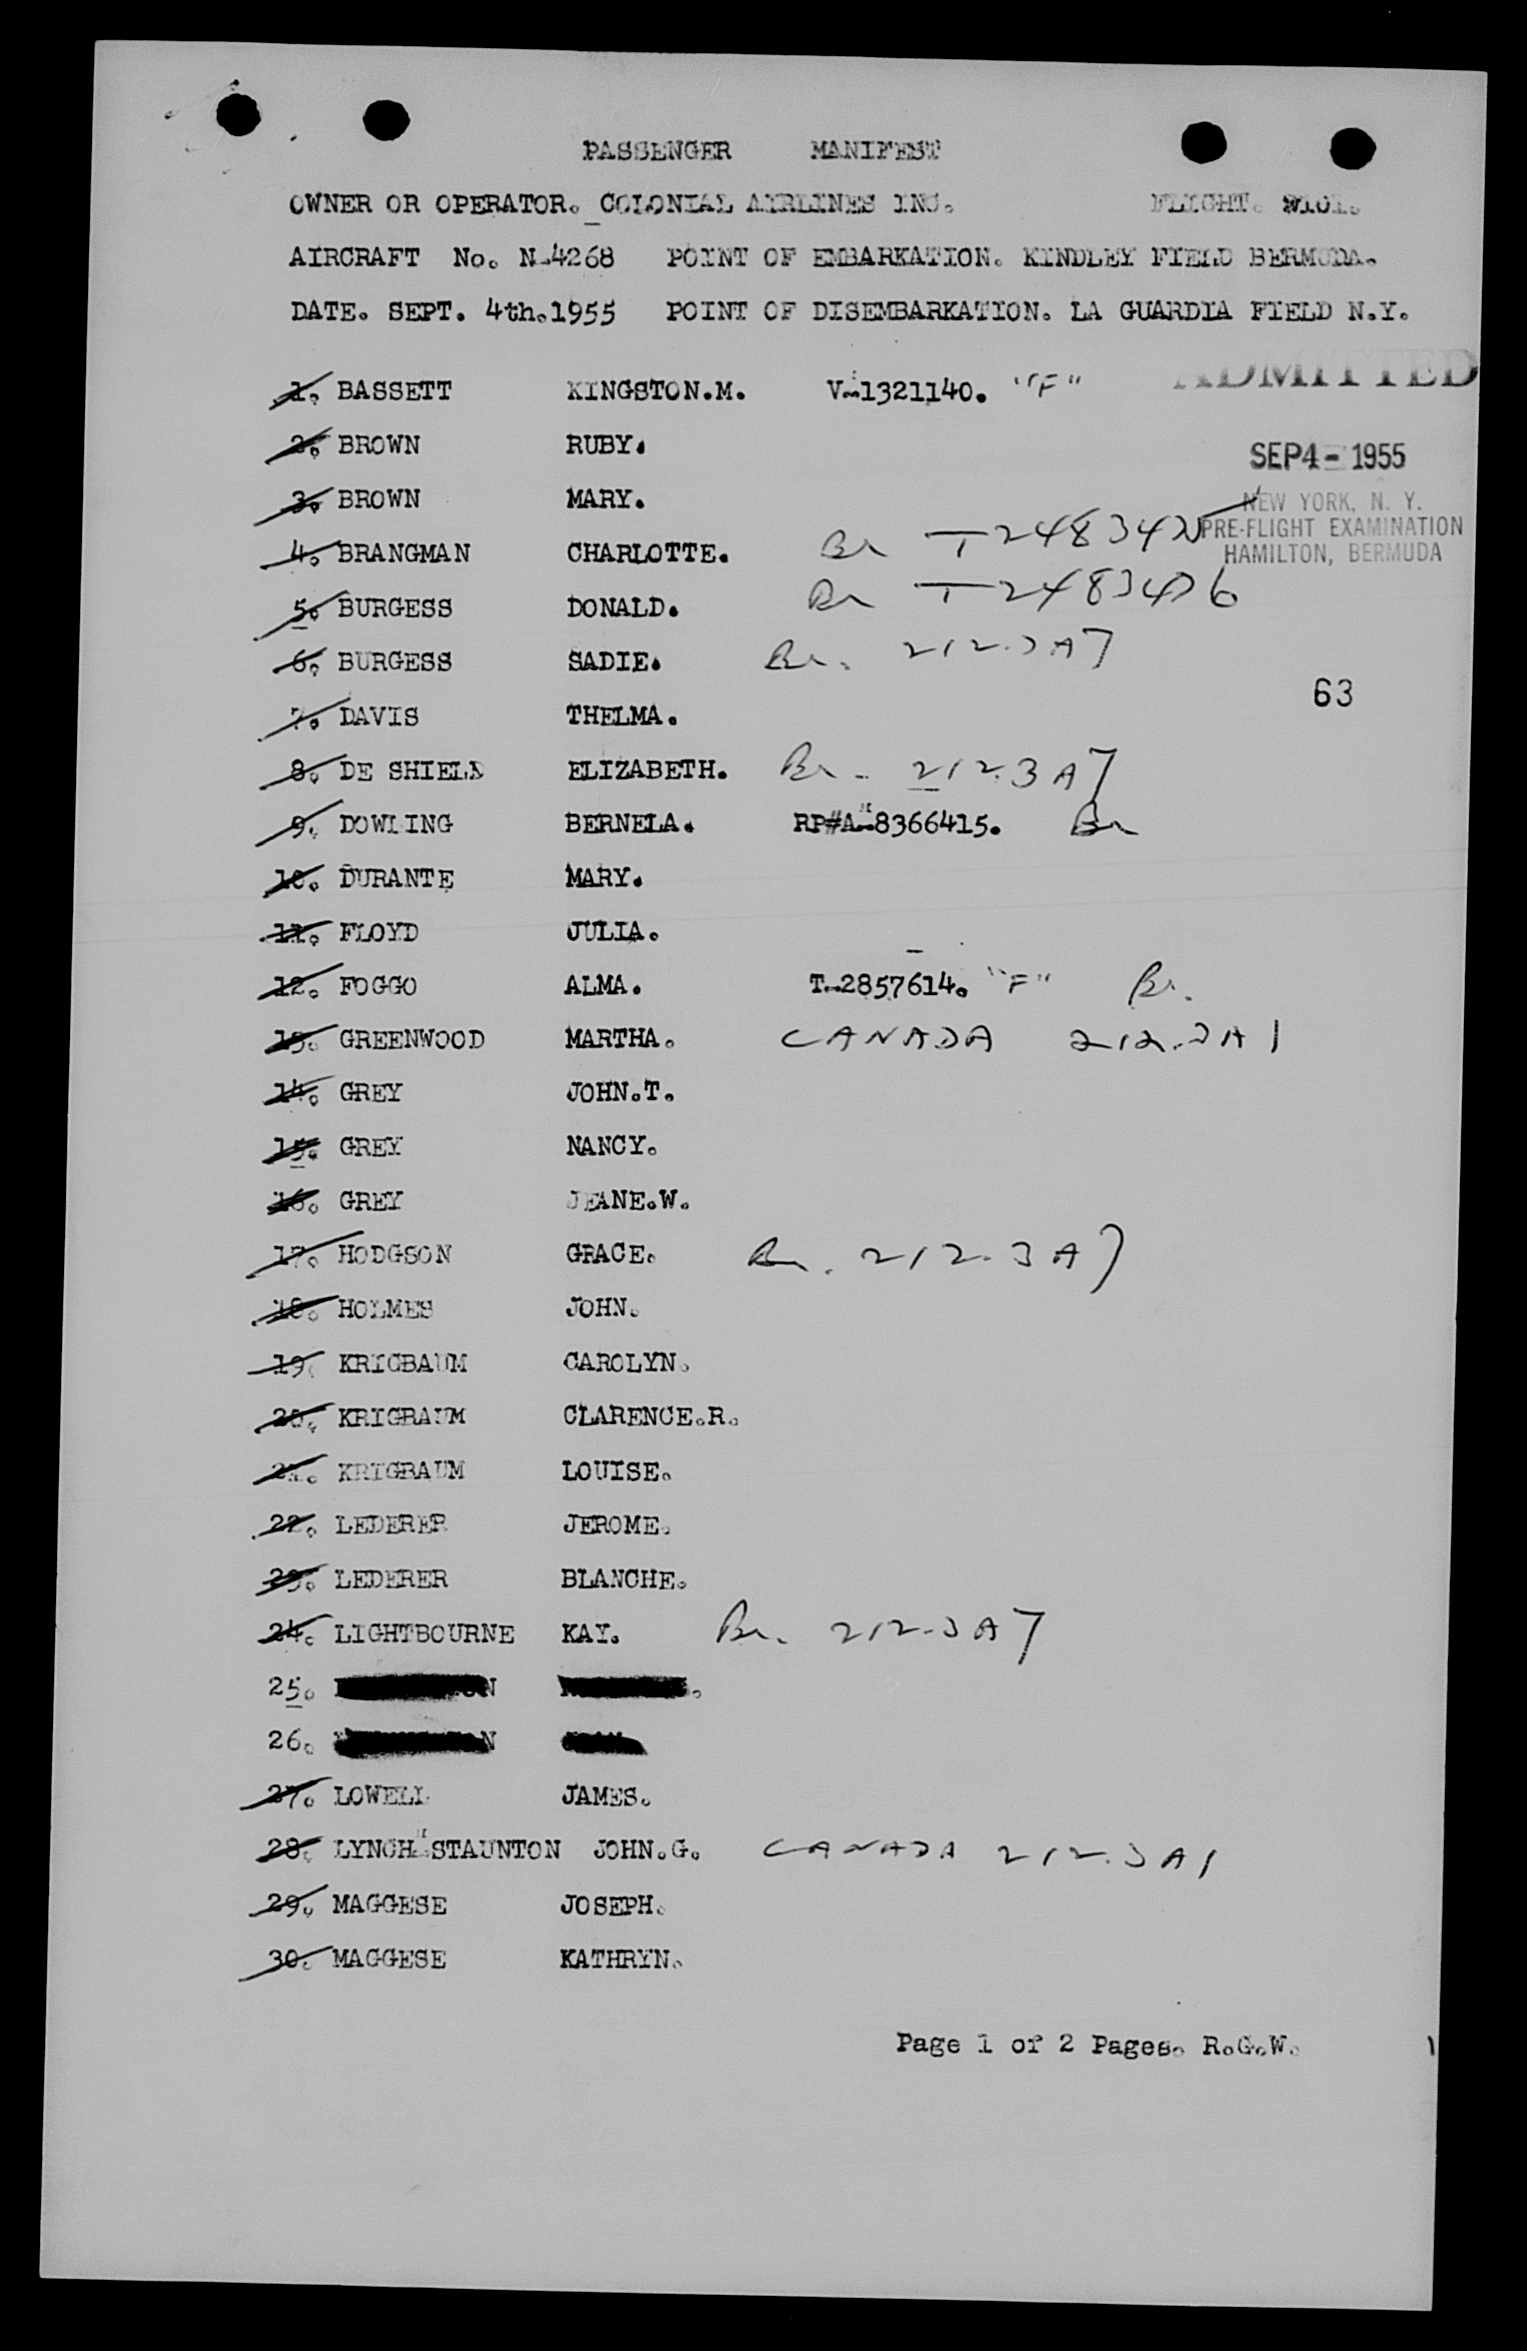 PASSENGER MANIFEST
OWNER OR OPERATOR. COLONIAL AIRLINES INC. FLIGHT.
AIRCRAFT No. N-4268 POINT OF EMBARKATION. KINDLEY FIELD BERMUDA.
DATE. SEPT. 4th.1955 POINT OF DISEMBARKATION. LA GUARDIA FIELD N.Y.
ADMITTED
1. BASSETT KINGSTON.M. V-1321140. "F"
2. BROWN RUBY.
SEP 4 - 1955
3. BROWN MARY.
NEW YORK, N. Y.
PRE-FLIGHT EXAMINATION
HAMILTON, BERMUDA
4. BRANGMAN CHARLOTTE. Br
5. BURGESS DONALD. Br
6. BURGESS SADIE. Br. 212.3A7
63
7. DAVIS THELMA.
8. DE SHIELD ELIZABETH. Br - 212.3A7
9. DOWLING BERNELA. RP#A-8366415. Br
10. DURANTE MARY.
11. FLOYD JULIA.
12. FOGGO ALMA. T-2857614. "F" Br.
13. GREENWOOD MARTHA. CANADA 212.3A1
14. GREY JOHN.T.
15. GREY NANCY.
16. GREY JEANE.W.
17. HODGSON GRACE. Br. 212.3A7
18. HOLMES JOHN.
19. KRIGBAUM CAROLYN.
20. KRIGBAUM CLARENCE.R.
21. KRIGBAUM LOUISE.
22. LEDERER JEROME.
23. LEDERER BLANCHE.
24. LIGHTBOURNE KAY. Br. 212.3A7
25.
26.
27. LOWELL JAMES.
28. LYNCH-STAUNTON JOHN.G. CANADA 212.3A1
29. MAGGESE JOSEPH.
30. MAGGESE KATHRYN.
Page 1 of 2 Pages. R.G.W.